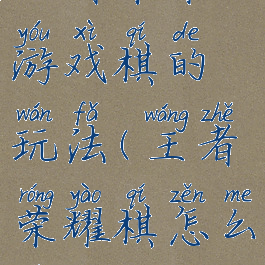 yóu xì qí de
游戏棋的
wán fǎ wáng zhě
玩法(王者
róng yào qí zěn me
荣耀棋怎么